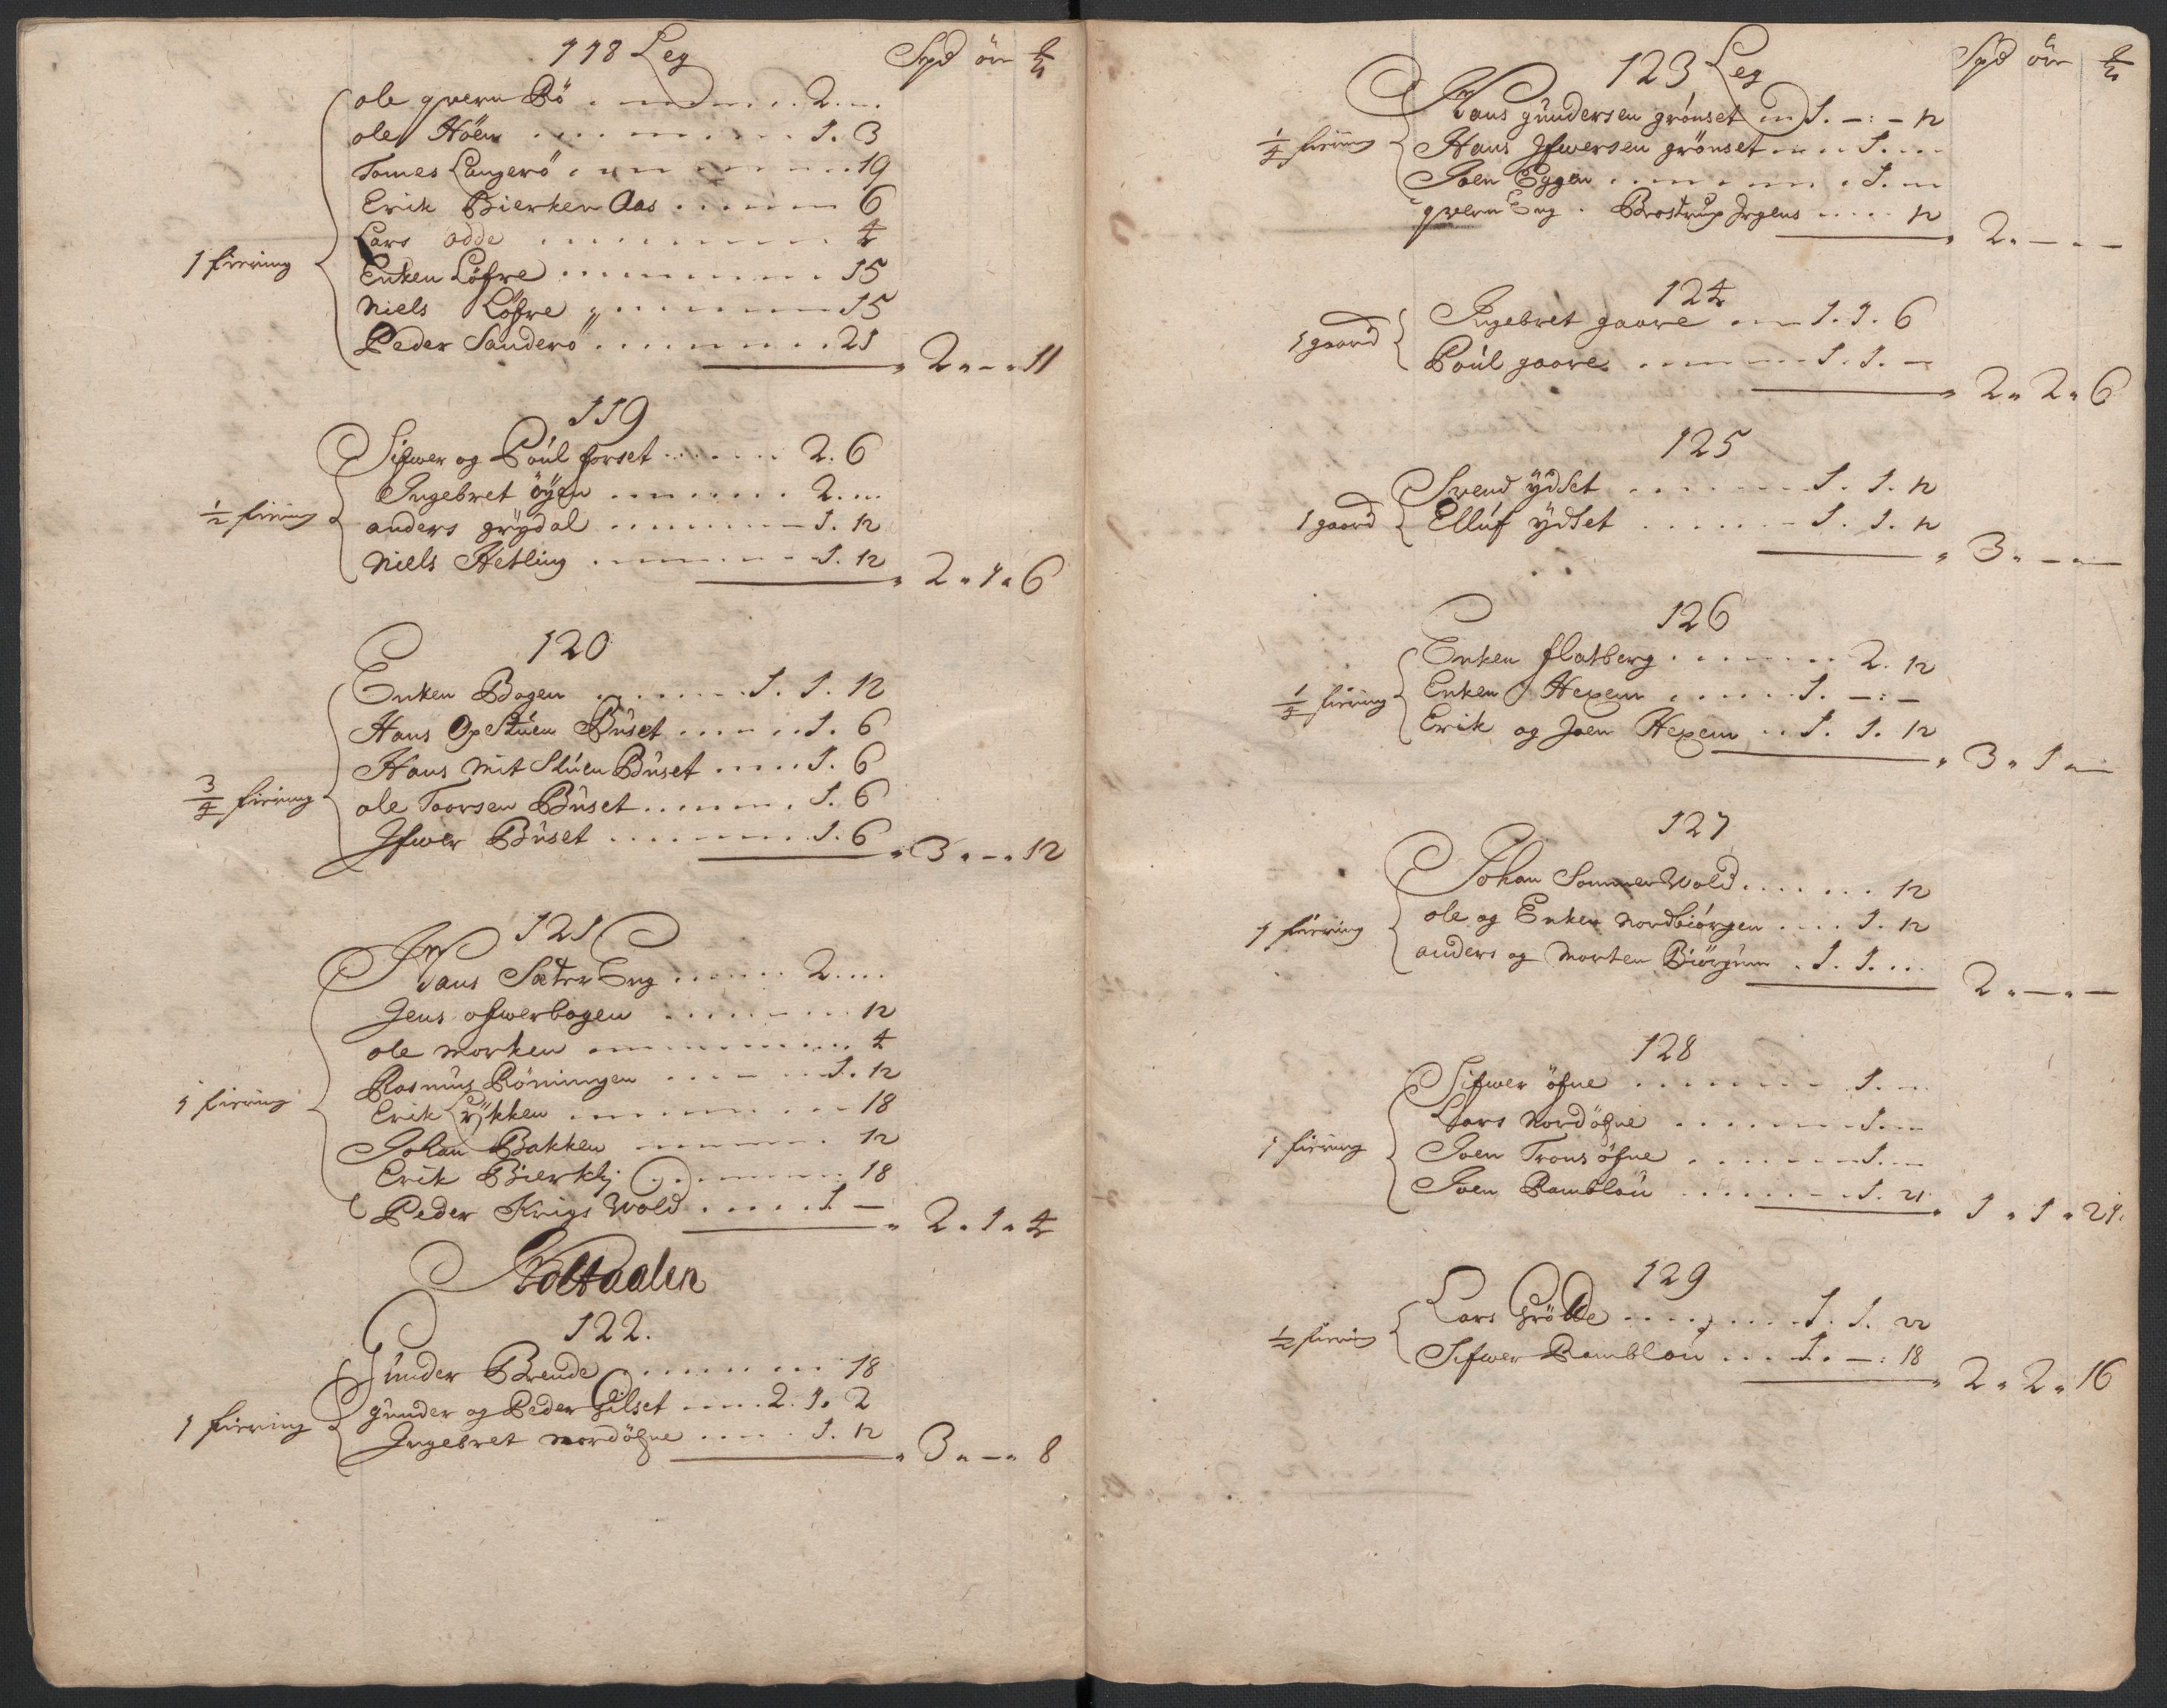 118 Leg Spd ör
ole qvern Bö . . . . 2. ...
ole Höen . . . . 1. 3
Tomes Langerö . . . . 19
Erik Bierken Aas . . . . 6
Lars odde . . . . 4
1 fiering Enken Löfre . . . . 15
Niels Löfre . . . . 15
Peder Sanderö . . . . 21
2 " - " 11
119
Sifwer og Poúl forset . . . . 2. 6
Ingebret öyen . . . . 2. ...
1/2 fiering anders grÿdal . . . . 1. 12
Niels Hetling . . . . 1. 12
2 " 1 " 6
120
Enken Bogen . . . . 1. 1. 12
Hans Op Stúen Búset . . . . 1. 6
Hans Mit Stúen Búset . . . . 1. 6
3/4 fiering ole Toorsen Búset . . . . 1. 6
Ifwer Búset . . . . 1. 6
3 " - " 12
121
Hans Sæter Eng . . . . 2. ...
Jens ofwerbogen . . . . 12
ole morken . . . . 4
Rasmus Röningen . . . . 1. 12
1 fiering Erik Lÿkken . . . . 18
Johan Bakken . . . . 12
Erik Bierkli . . . . 18
Peder Krigs Wold . . . . 1 -
2 " 1 " 4
Holtaalen
122.
Gúnder Brende . . . . 18
gúnder og Peder Gilset . . . . 2. 1. 2
1 fiering Ingebret nordöfne . . . . 1. 12
3 " - " 8
123 Leg Spd ör
Hans gúndersen grönset 1. -: - 12
1/4 fiering Hans Ifwersen grönset . . . . 1. ...
Joen Eggen . . . . 1. ...
qvern Eng . Brostrup Jrgens . . . . 12
2. - . -
124
Ingebret gaare . . . . 1. 1. 6
1 gaard Poúl gaare . . . . 1. 1. -
2 " 2 " 6
125
Svend ÿdset . . . . 1. 1. 12
1 gaard Ellúf ÿdset . . . . 1. 1. 12
3 " - " -
126
Enken flatberg . . . . 2. 12
1/4 fiering Enken Hexem . . . . 1. -: -
Erik og Joen Hexem . . 1. 1. 12
3 " 1 " -
127
Johan Sommer Wold . . . . 12
1 fiering ole og Enken nordbiörgen . . . . 1. 12
anders og Morten Biörgúm . 1. 1. ...
2 " - " -
128
Sifwer öfne . . . . 1. ...
Lars nordöfne . . . . 1. ...
1 fiering Joen Trons öfne . . . . 1. ...
Joen Ramblaú . . . . 1. 21
1 " 1 " 21.
129
Lars Grötte . . . . 1. 1. 22
1/2 fiering Sifwer Ramblaú . . . 1. -: 18
2 " 2 " 16